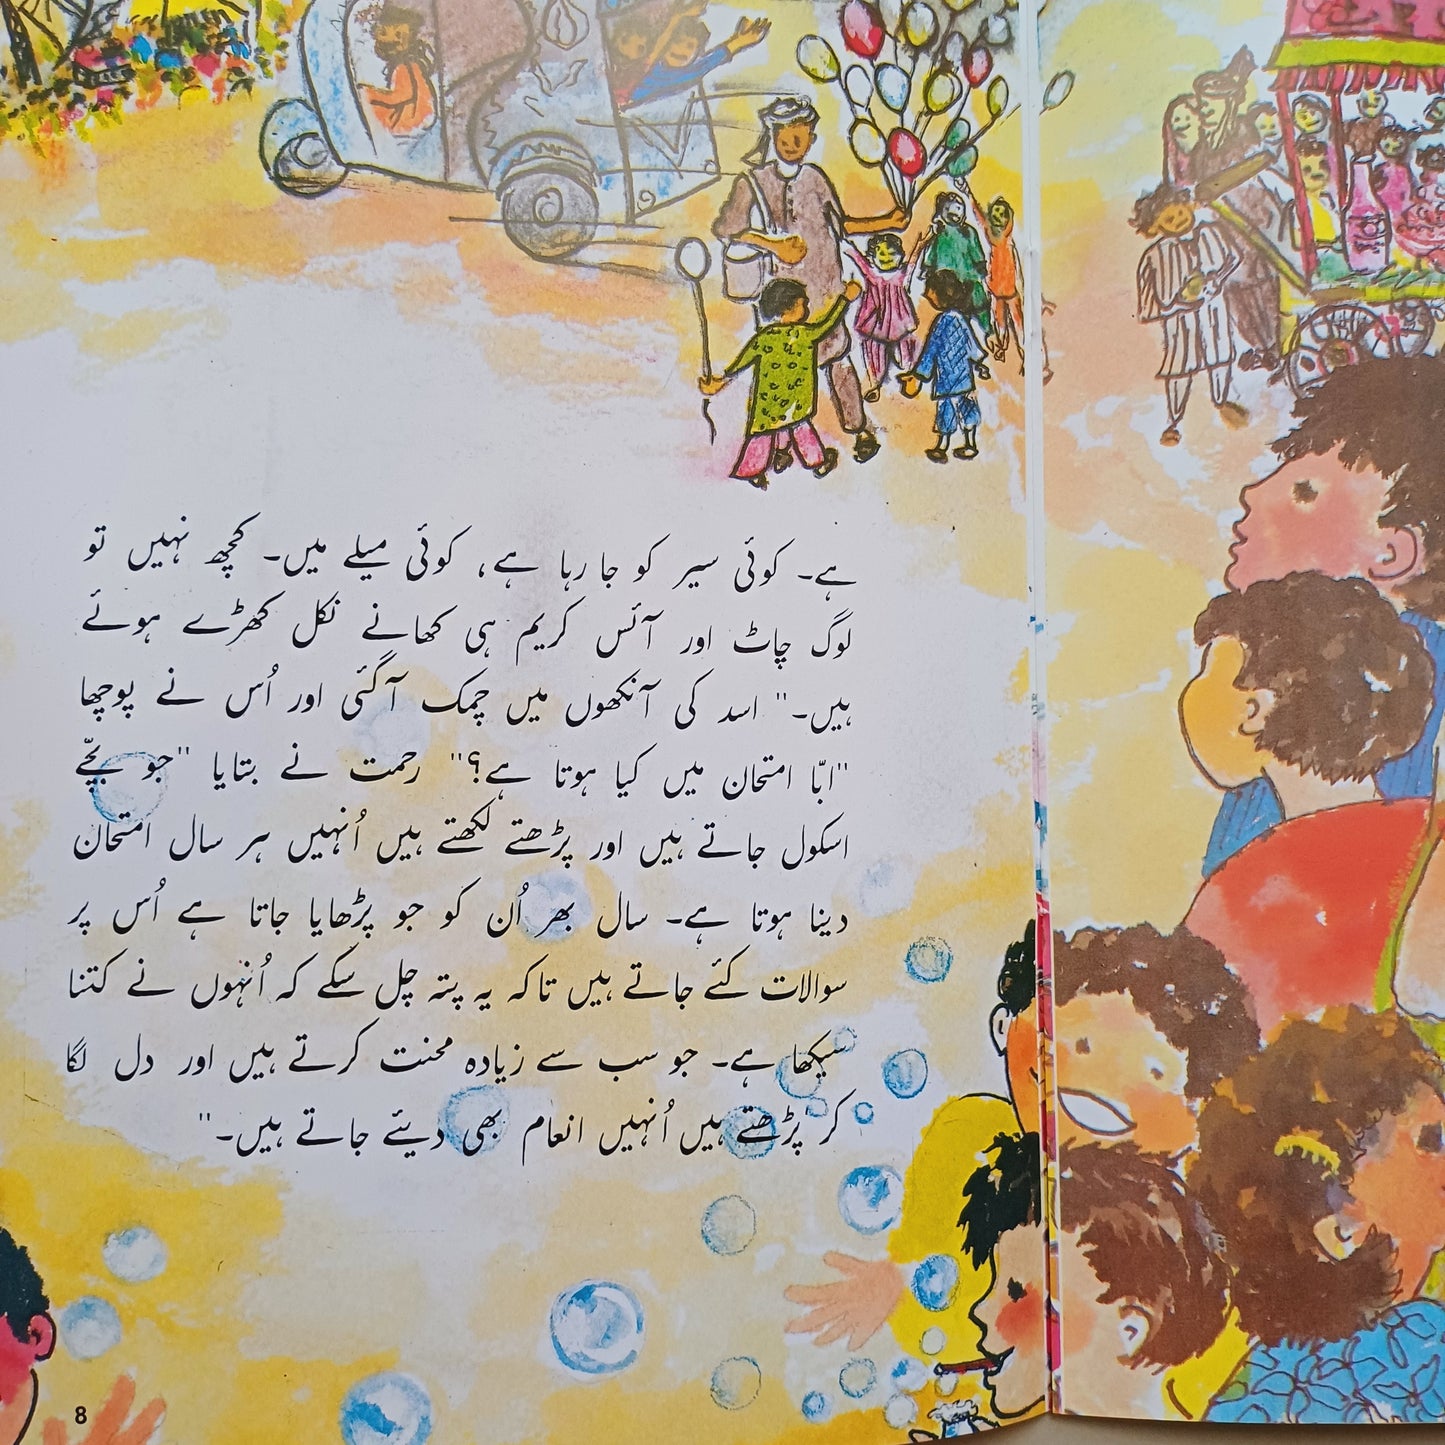 ہے۔ کوئی سیر کو جا رہا ہے، کوئی میلے میں۔ کچھ نہیں تو
لوگ چاٹ اور آئس کریم ہی کھانے نکل کھڑے ہوئے
ہیں۔" اسد کی آنکھوں میں چمک آگئی اور اُس نے پوچھا
"ابّا امتحان میں کیا ہوتا ہے؟" رحمت نے بتایا "جو بچّے
اسکول جاتے ہیں اور پڑھتے لکھتے ہیں اُنہیں ہر سال امتحان
دینا ہوتا ہے۔ سال بھر اُن کو جو پڑھایا جاتا ہے اُس پر
سوالات کئے جاتے ہیں تاکہ یہ پتہ چل سکے کہ اُنہوں نے کتنا
سیکھا ہے۔ جو سب سے زیادہ محنت کرتے ہیں اور دل لگا
کر پڑھتے ہیں اُنہیں انعام بھی دیئے جاتے ہیں۔"
8